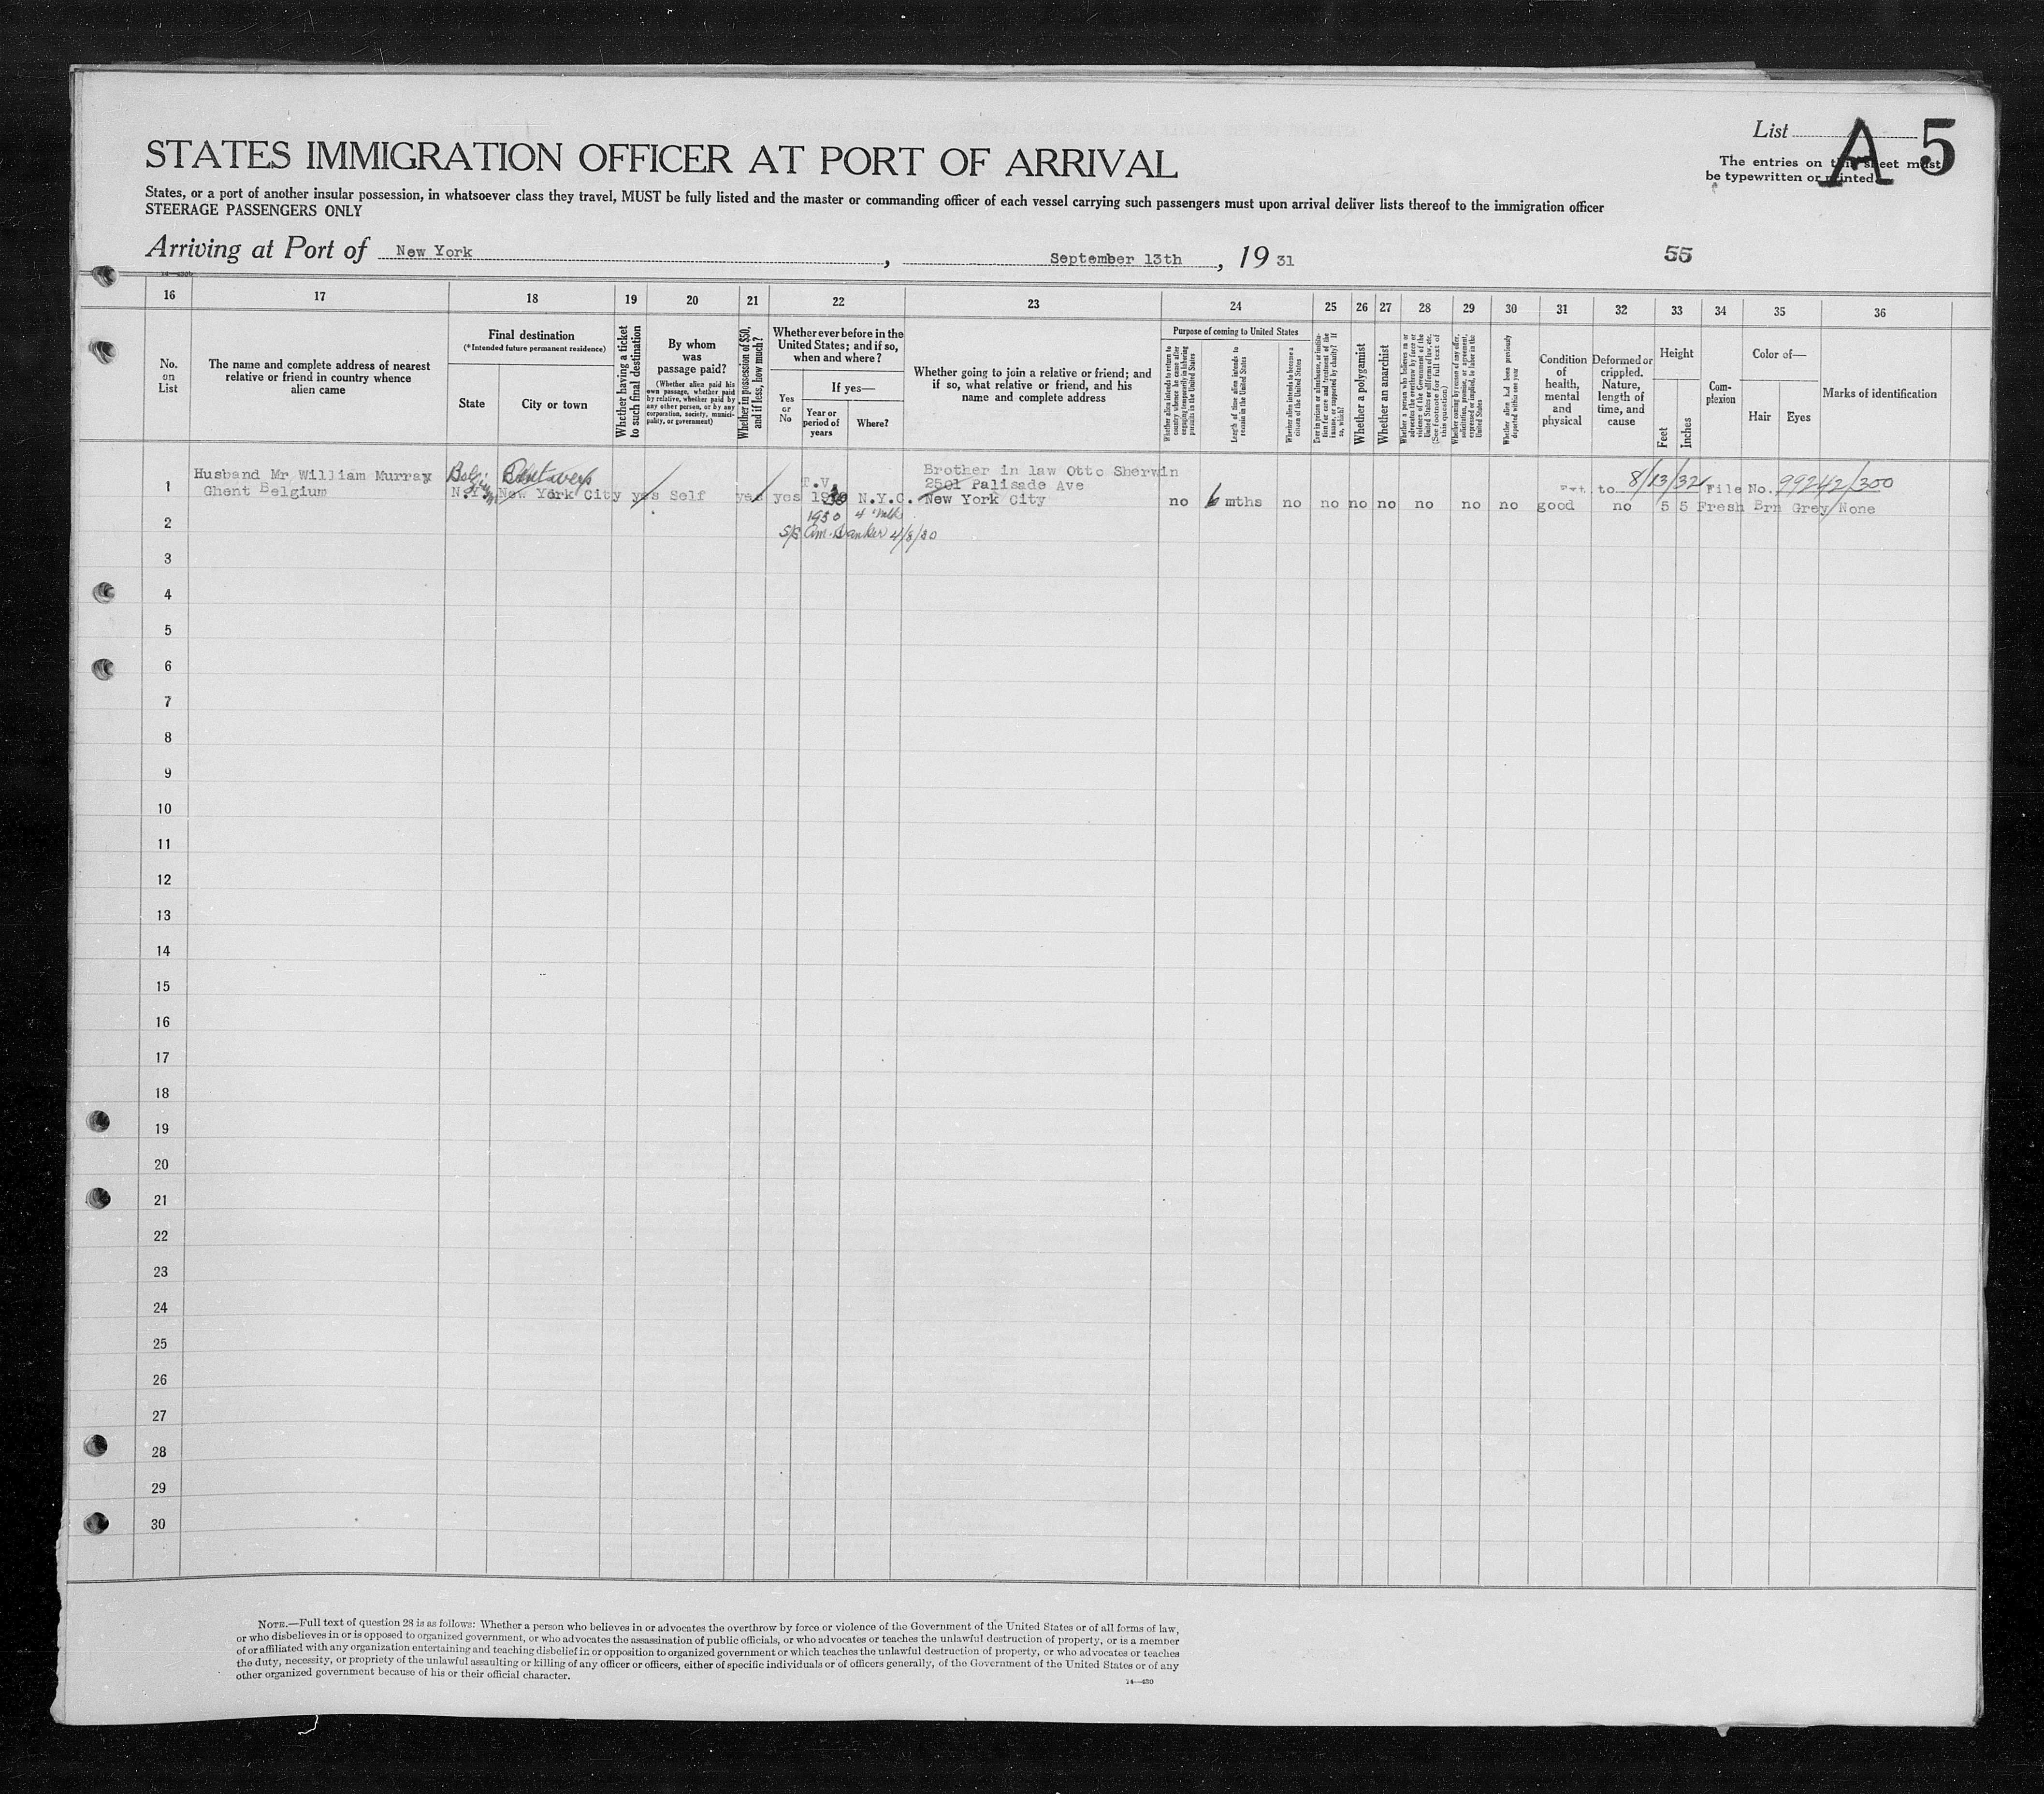 List A 5
The entries on this sheet must
be typewritten or printed
STATES IMMIGRATION OFFICER AT PORT OF ARRIVAL
States, or a port of another insular possession, in whatsoever class they travel, MUST be fully listed and the master or commanding officer of each vessel carrying such passengers must upon arrival deliver lists thereof to the immigration officer
STEERAGE PASSENGERS ONLY
Arriving at Port of New York, September 13th, 19 31
55
16 17 18 19 20 21 22 23 24 25 26 27 28 29 30 31 32 33 34 35 36
No. on List
The name and complete address of nearest relative or friend in country whence alien came
Final destination
(*Intended future permanent residence)
State
City or town
Whether having a ticket to such final destination
By whom was passage paid?
(Whether alien paid his own passage, whether paid by relative, whether paid by any other person, or by any corporation, society, municipality, or government)
Whether in possession of $50, and if less, how much?
Whether ever before in the United States; and if so, when and where?
Yes or No
If yes—
Year or period of years
Where?
Whether going to join a relative or friend; and if so, what relative or friend, and his name and complete address
Purpose of coming to United States
Whether alien intends to return to country whence he came after engaging temporarily in laboring pursuits in the United States
Length of time alien intends to remain in the United States
Whether alien intends to become a citizen of the United States
Ever in prison or almshouse, or institution for care and treatment of the insane, or supported by charity? If so, which?
Whether a polygamist
Whether an anarchist
Whether a person who believes in or advocates the overthrow by force or violence of the Government of the United States or all forms of law, etc. (See footnote for full text of this question.)
Whether coming by reason of any offer, solicitation, promise, or agreement, expressed or implied, to labor in the United States
Whether alien had been previously deported within one year
Condition of health, mental and physical
Deformed or crippled. Nature, length of time, and cause
Height
Feet
Inches
Complexion
Color of—
Hair
Eyes
Marks of identification
Husband Mr William Murray
Ghent Belgium
Belgium Antwerp
N.Y. New York City yes Self yes yes N.Y.C.
T.V.
1930 4 mths
S/S Am. Banker 4/8/30
Brother in law Otto Sherwin
2501 Palisade Ave
New York City
no 6 mths no no no no no no no good no 5 5 Fresh Brn Grey None
to 8/13/32 File No. 99242/300
1
2
3
4
5
6
7
8
9
10
11
12
13
14
15
16
17
18
19
20
21
22
23
24
25
26
27
28
29
30
NOTE.—Full text of question 28 is as follows: Whether a person who believes in or advocates the overthrow by force or violence of the Government of the United States or of all forms of law,
or who disbelieves in or is opposed to organized government, or who advocates the assassination of public officials, or who advocates or teaches the unlawful destruction of property, or is a member
of or affiliated with any organization entertaining and teaching disbelief in or opposition to organized government or which teaches the unlawful destruction of property, or who advocates or teaches
the duty, necessity, or propriety of the unlawful assaulting or killing of any officer or officers, either of specific individuals or of officers generally, of the Government of the United States or of any
other organized government because of his or their official character.
14—430